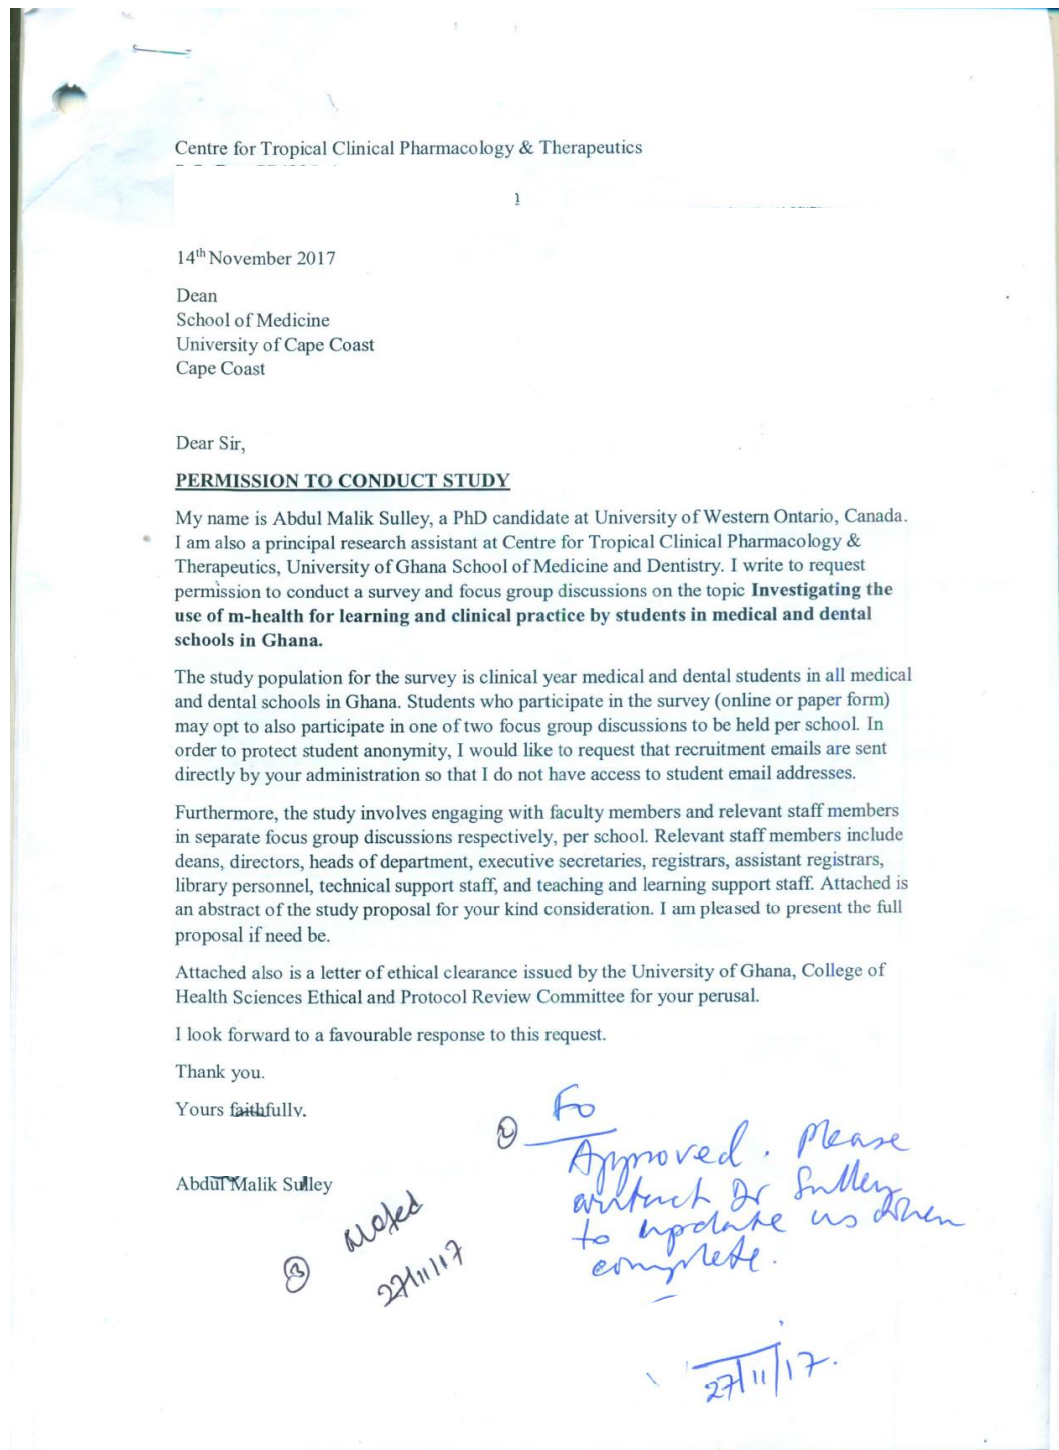 Centre for Tropical Clinical Pharmacology & Therapeutics
14th November 2017
Dean
School of Medicine
University of Cape Coast
Cape Coast
Dear Sir,
PERMISSION TO CONDUCT STUDY
My name is Abdul Malik Sulley, a PhD candidate at University of Western Ontario, Canada.
I am also a principal research assistant at Centre for Tropical Clinical Pharmacology &
Therapeutics, University of Ghana School of Medicine and Dentistry. I write to request
permission to conduct a survey and focus group discussions on the topic Investigating the
use of m-health for learning and clinical practice by students in medical and dental
schools in Ghana.
The study population for the survey is clinical year medical and dental students in all medical
and dental schools in Ghana. Students who participate in the survey (online or paper form)
may opt to also participate in one of two focus group discussions to be held per school. In
order to protect student anonymity, I would like to request that recruitment emails are sent
directly by your administration so that I do not have access to student email addresses.
Furthermore, the study involves engaging with faculty members and relevant staff members
in separate focus group discussions respectively, per school. Relevant staff members include
deans, directors, heads of department, executive secretaries, registrars, assistant registrars,
library personnel, technical support staff, and teaching and learning support staff. Attached is
an abstract of the study proposal for your kind consideration. I am pleased to present the full
proposal if need be.
Attached also is a letter of ethical clearance issued by the University of Ghana, College of
Health Sciences Ethical and Protocol Review Committee for your perusal.
I look forward to a favourable response to this request.
Thank you.
Yours faithfully.
Abdul Malik Sulley
2 Fo
Approved. Please
contact Dr Sulley
to update us when
complete.
27/11/17.
3 Noted
27/11/17